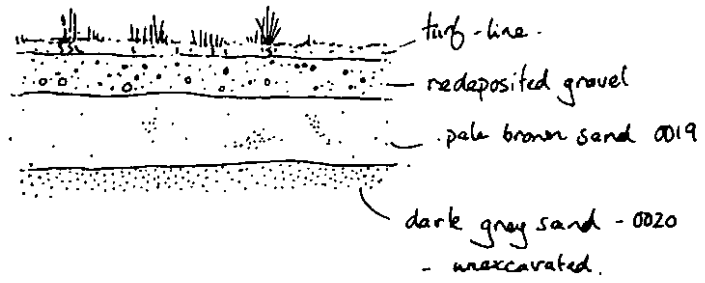 turf-line.
redeposited gravel
pale brown sand 0019
dark grey sand - 0020
- unexcavated.